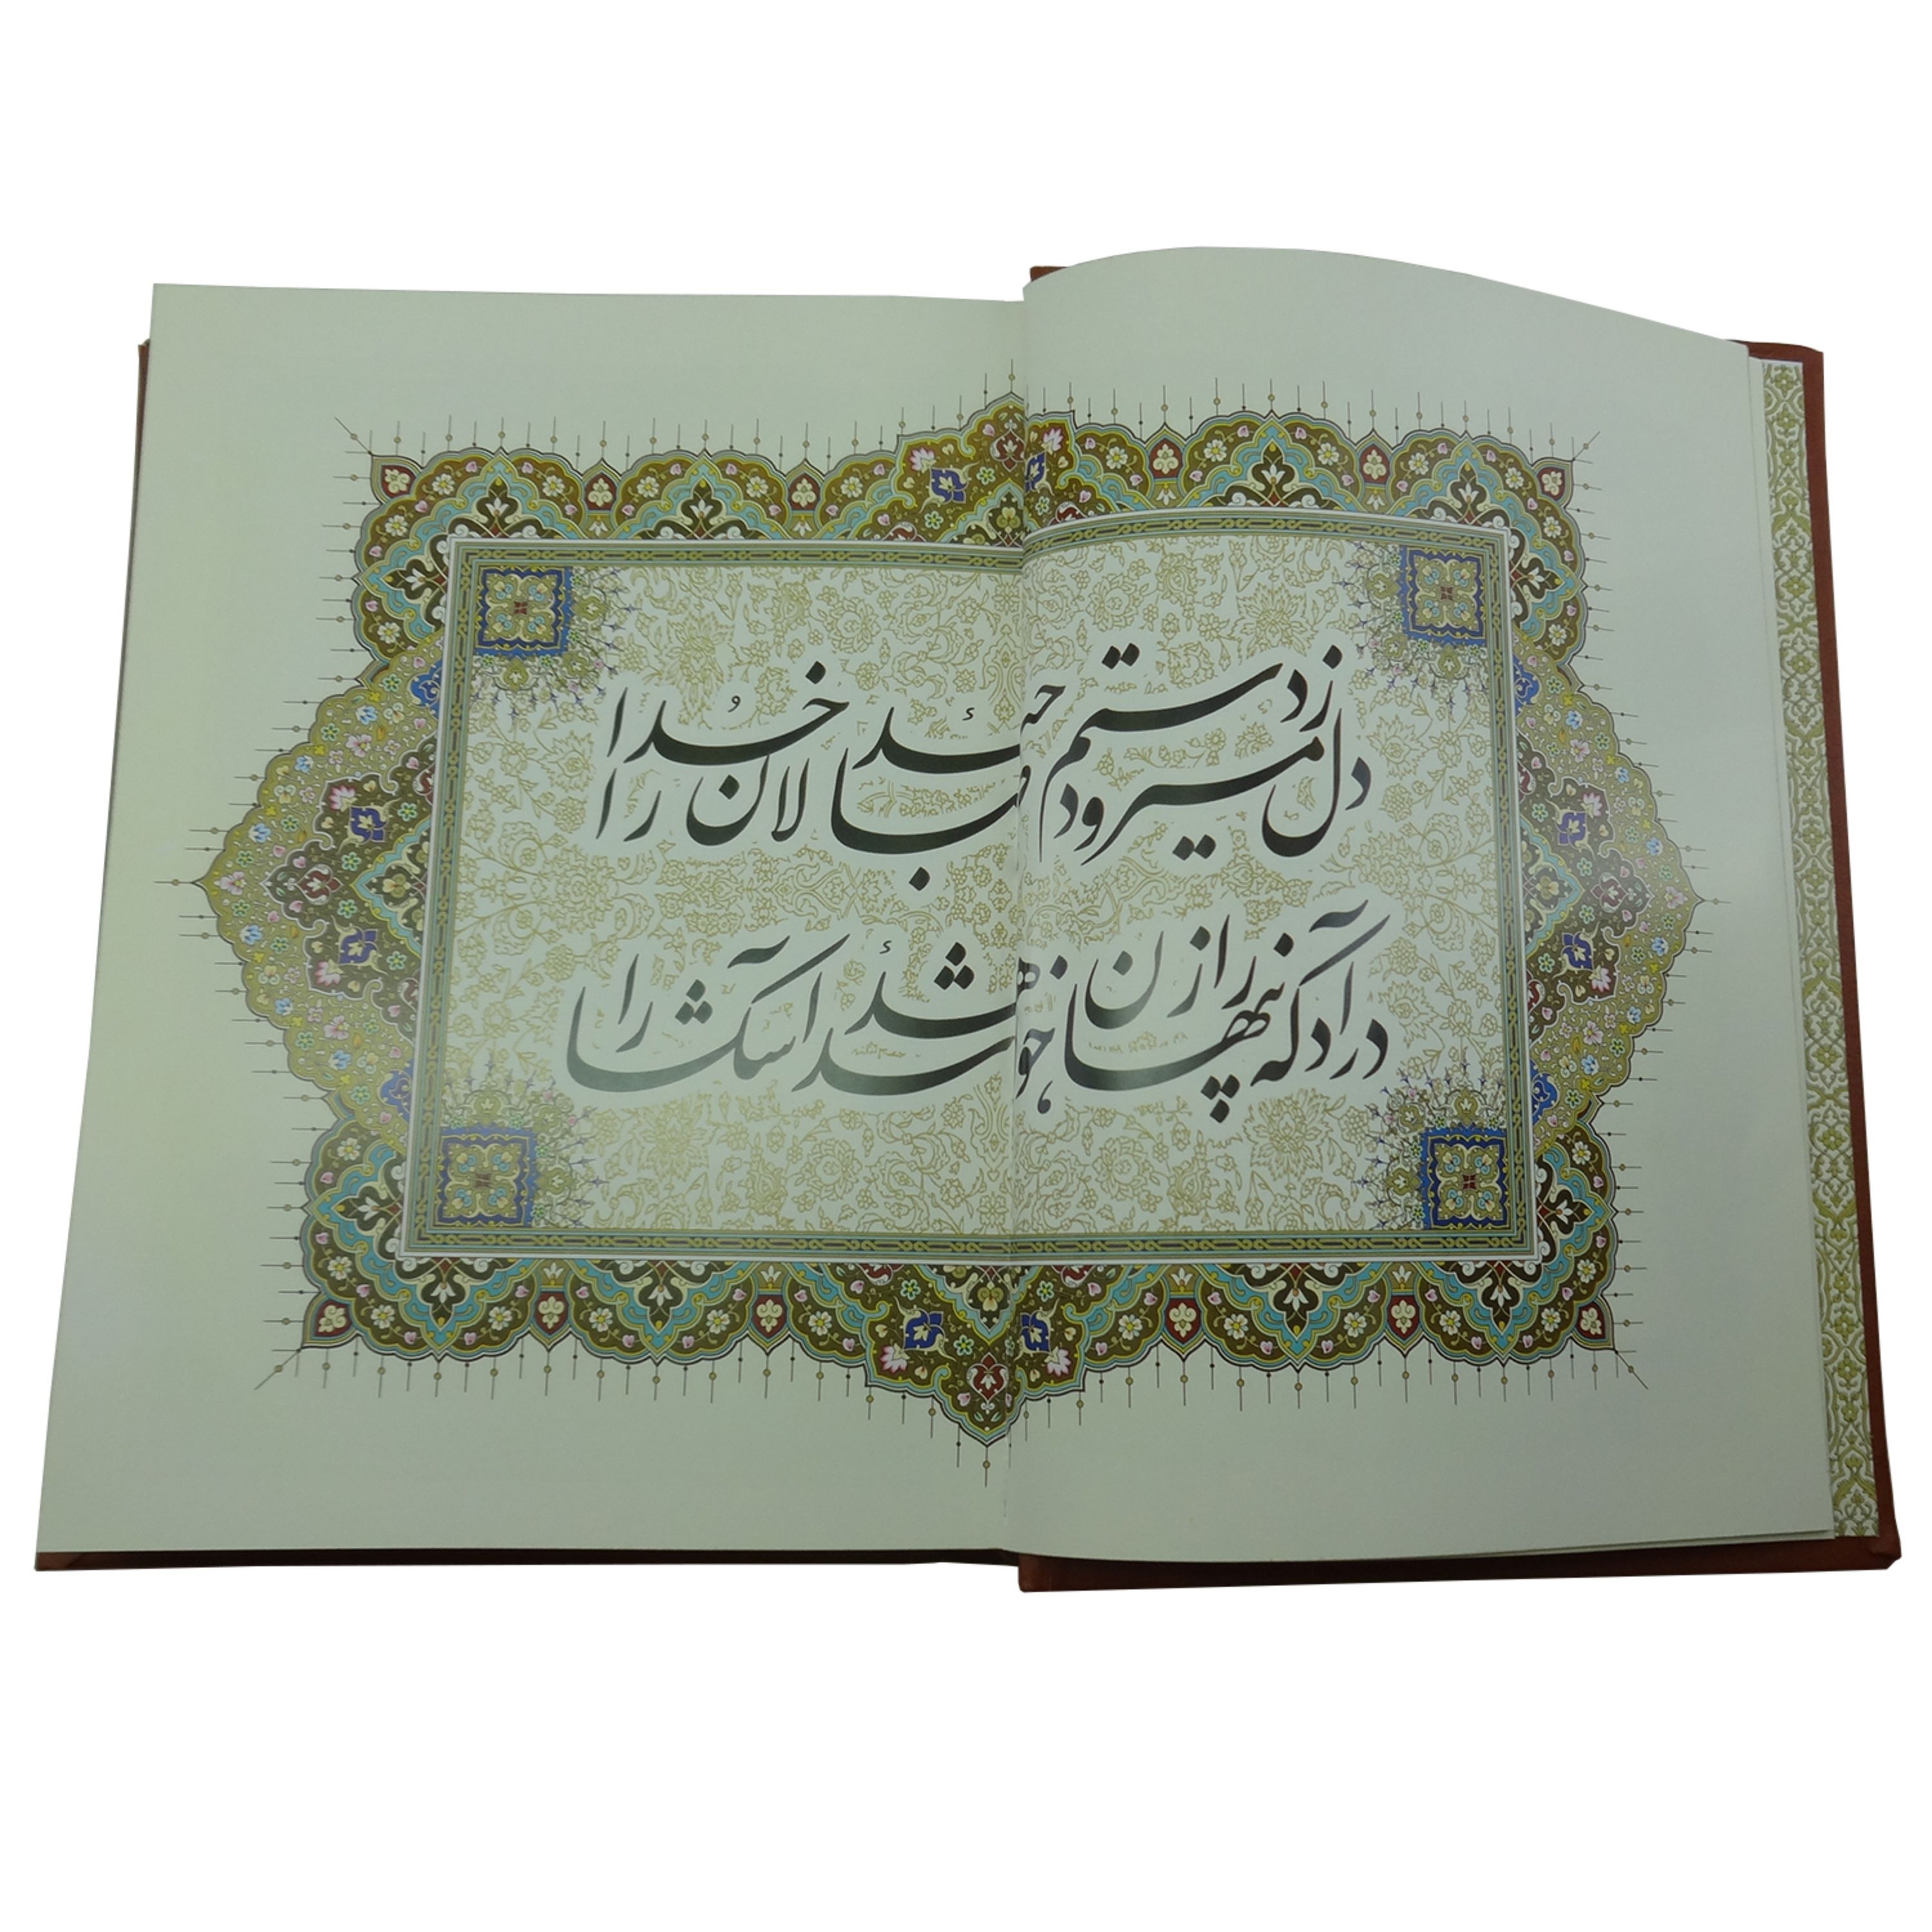 دل میرود ز دستم صاحبدلان خدا را
دردا که راز پنهان خواهد شد آشکارا